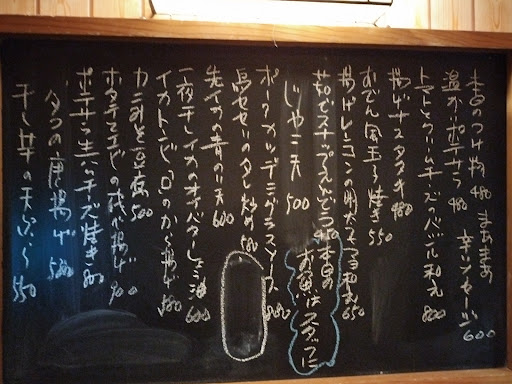 本日のつけ物 480
まあまあ辛いソーセージ 600
温かいポテサラ 480
トマトとクリームチーズのバジル和え 800
揚げナスタタキ 480
おでん風玉子焼き 550
揚げレンコンの明太マヨ和え 650
茹でスナップえんどう 450
本日のお魚はスタッフに
じゃこ天 500
ポークカツデミグラスソース
鳥セセリのタレ炒め 680
先イカの青のり天 600
一夜干しイカのオイバターしょう油 600
イカトンビ「口」のから揚げ 580
カニみそ豆腐 500
ホタテとエビの茂や揚げ 900
ポテサラ生ハムチーズ焼き 800
タコの唐揚げ 580
干し芋の天ぷら 550